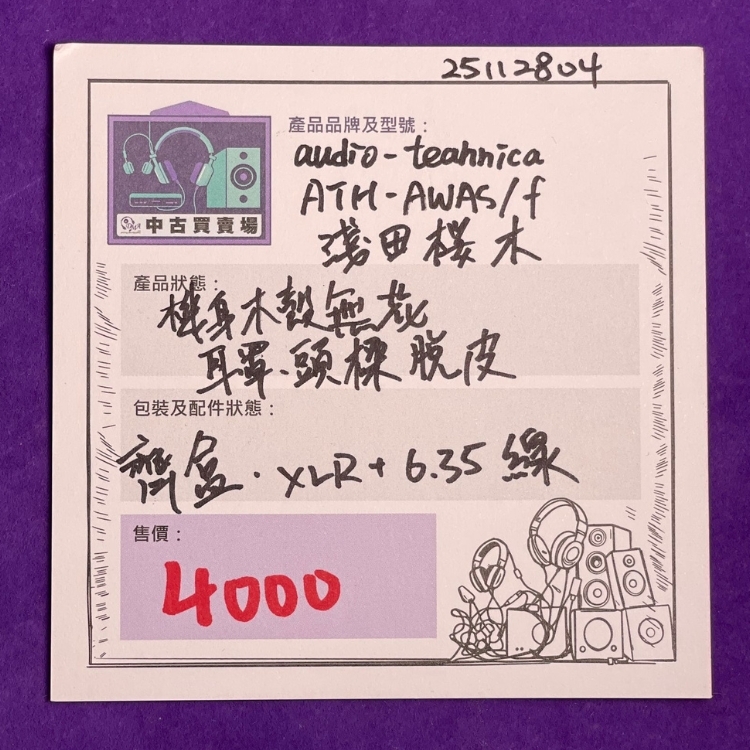 25112804
產品品牌及型號：
audio-teahnica
ATH-AWAS/f
淺田櫻木
中古買賣場
產品狀態：
機身木殼無花
耳罩、頭樑脫皮
包裝及配件狀態：
齊盒·XLR+6.35線
售價：
4000